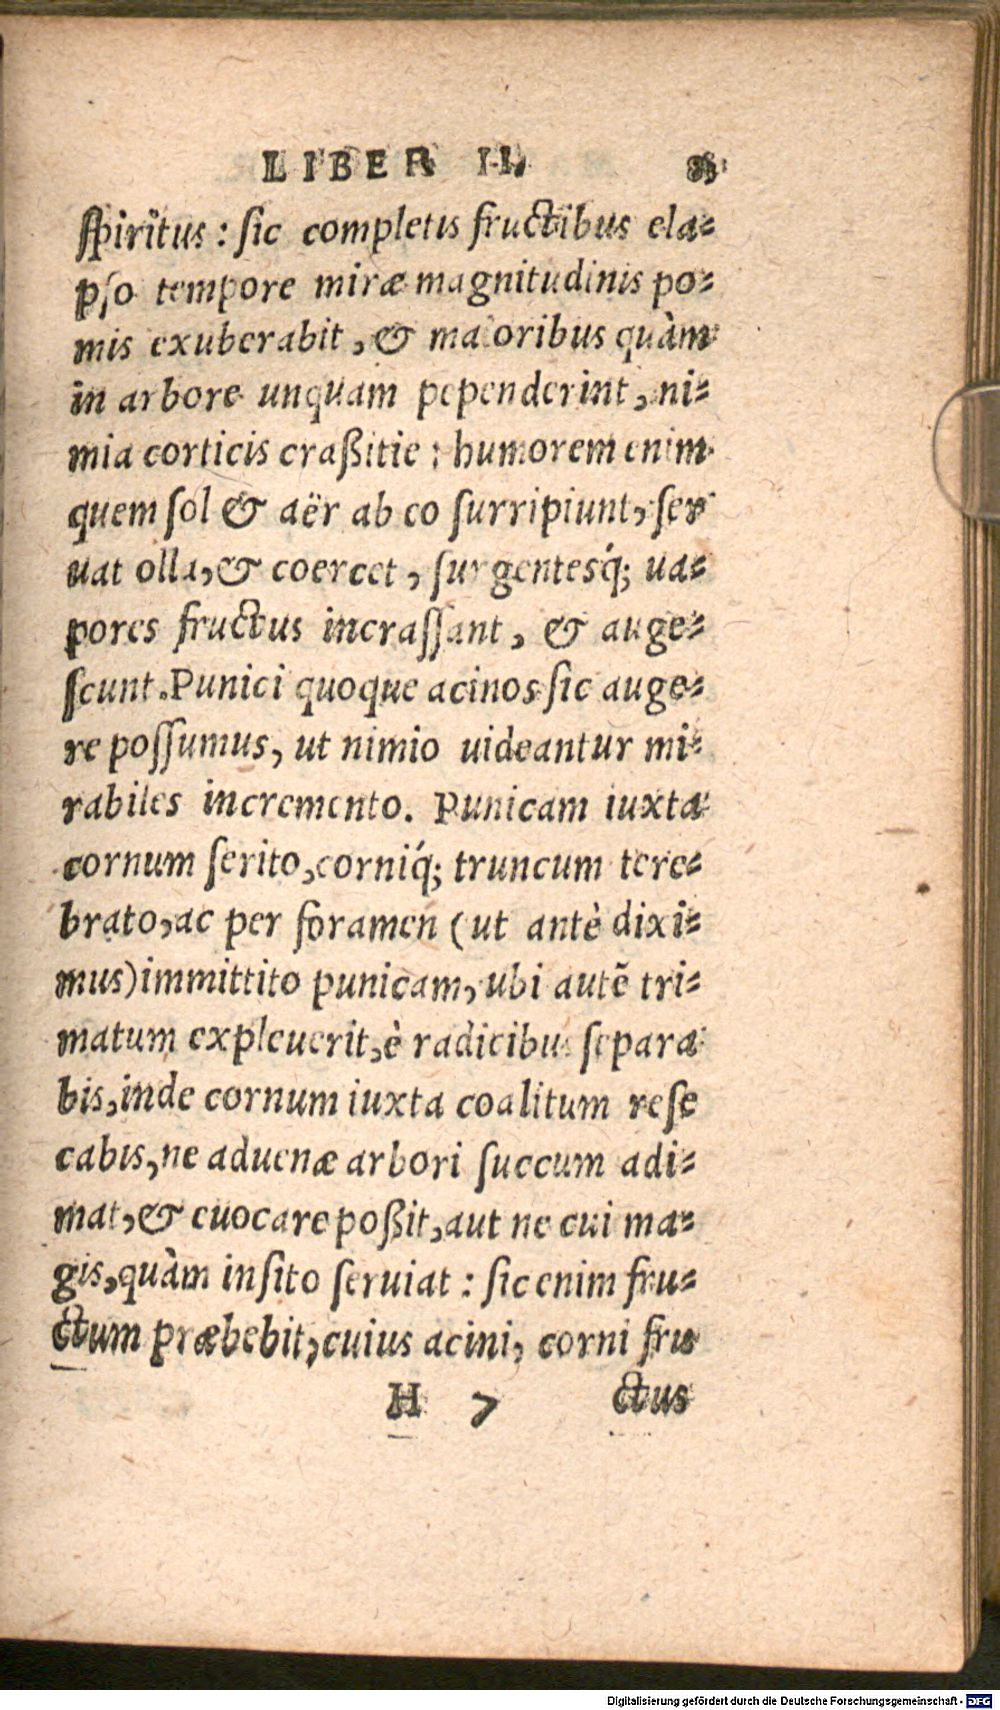 LIBER II.
ſpiritus : ſic completis fructibus ela-
pſo tempore miræ magnitudinis po-
mis exuberabit, & maioribus quàm
in arbore unquam pependerint, ni-
mia corticis craßitie : humorem enim
quem ſol & aër ab eo ſurripiunt, ſer
uat olla, & coercet, ſurgentesq́; ua-
pores fructus incraſſant, & auge-
ſcunt. Punici quoque acinos ſic auge-
re poſſumus, ut nimio uideantur mi-
rabiles incremento. Punicam iuxta
cornum ſerito, corniq́; truncum tere-
brato, ac per foramen (ut antè dixi-
mus) immittito punicam, ubi autē tri-
matum expleuerit, è radicibus ſepara
bis, inde cornum iuxta coalitum reſe
cabis, ne aduenæ arbori ſuccum adi-
mat, & euocare poßit, aut ne cui ma-
gis, quàm inſito ſeruiat : ſic enim fru-
ctum præbebit, cuius acini, corni fru
H 7 ctus
Digitalisierung gefördert durch die Deutsche Forschungsgemeinschaft - DFG